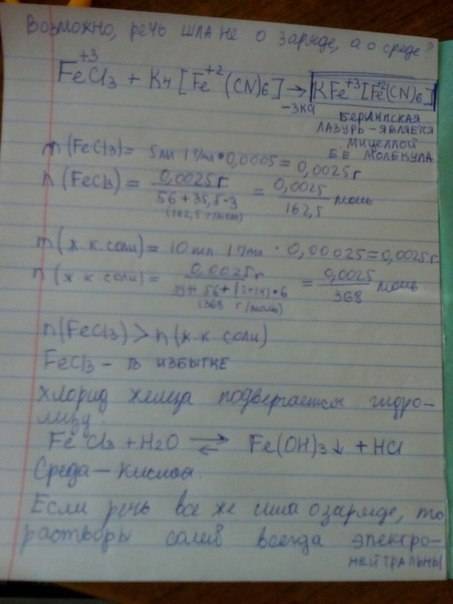 Возможно, речь шла не о заряде, а о среде?
+3 +2 +3 +2
FeCl3 + K4[Fe(CN)6] → KFe[Fe(CN)6]
-3KCl
БЕРЛИНСКАЯ
ЛАЗУРЬ - ЯВЛЯЕТСЯ
МИЦЕЛЛОЙ
ЕЕ МОЛЕКУЛА
m(FeCl3) = 5мл · 1г/мл · 0,0005 = 0,0025г
n(FeCl3) = 0,0025г / 56+35,5·3 = 0,0025 / 162,5 моль
(162,5 г/моль)
m(ж к соли) = 10мл · 1г/мл · 0,00025 = 0,0025г
n(ж к соли) = 0,0025г / 39·4+56+(12+14)·6 = 0,0025 / 368 моль
(368 г/моль)
n(FeCl3) > n(ж к соли)
FeCl3 - В ИЗБЫТКЕ
хлорид железа подвергается гидро-
лизу
FeCl3 + H2O ⇄ Fe(OH)3↓ + HCl
Среда - кислая
Если речь все же шла о заряде, то
растворы солей всегда электро-
НЕЙТРАЛЬНЫ